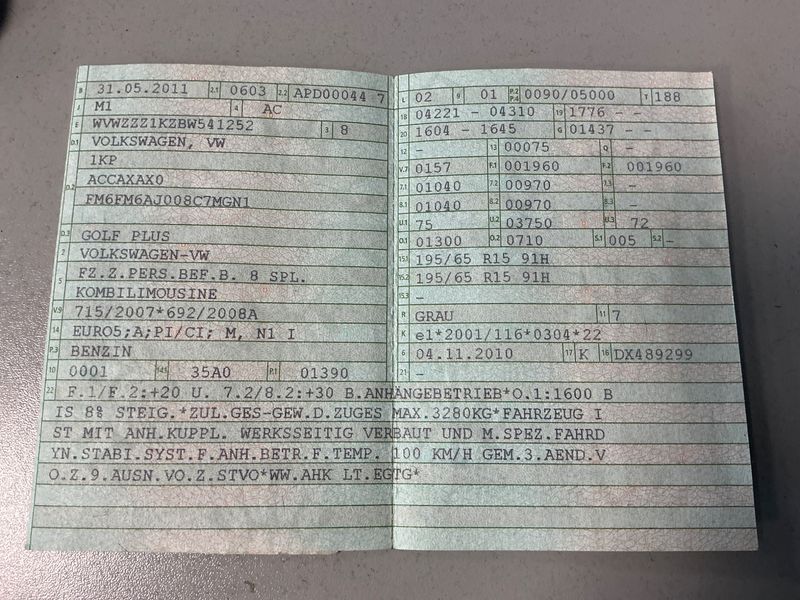 B 31.05.2011 2.1 0603 2.2 APD00044 7
J M1 4 AC
E WVWZZZ1KZBW541252 3 8
D.1 VOLKSWAGEN, VW
1KP
D.2 ACCAXAX0
FM6FM6AJ008C7MGN1
D.3 GOLF PLUS
2 VOLKSWAGEN-VW
5 FZ.Z.PERS.BEF.B. 8 SPL.
KOMBILIMOUSINE
V.9 715/2007*692/2008A
14 EURO5;A;PI/CI; M, N1 I
P.3 BENZIN
10 0001 14.1 35A0 P.1 01390
L 02 9 01 P.2 P.4 0090/05000 T 188
18 04221 - 04310 19 1776 - -
20 1604 - 1645 G 01437 - -
12 - 13 00075 Q -
V.7 0157 F.1 001960 F.2 001960
7.1 01040 7.2 00970 7.3 -
8.1 01040 8.2 00970 8.3 -
U.1 75 U.2 03750 U.3 72
O.1 01300 O.2 0710 S.1 005 S.2 -
15.1 195/65 R15 91H
15.2 195/65 R15 91H
15.3 -
R GRAU 11 7
K e1*2001/116*0304*22
6 04.11.2010 17 K 16 DX489299
21 -
22 F.1/F.2:+20 U. 7.2/8.2:+30 B.ANHÄNGEBETRIEB*O.1:1600 B
IS 8% STEIG.*ZUL.GES-GEW.D.ZUGES MAX.3280KG*FAHRZEUG I
ST MIT ANH.KUPPL. WERKSSEITIG VERBAUT UND M.SPEZ.FAHRD
YN.STABI.SYST.F.ANH.BETR.F.TEMP. 100 KM/H GEM.3.AEND.V
O.Z.9.AUSN.VO.Z.STVO*WW.AHK LT.EGTG*